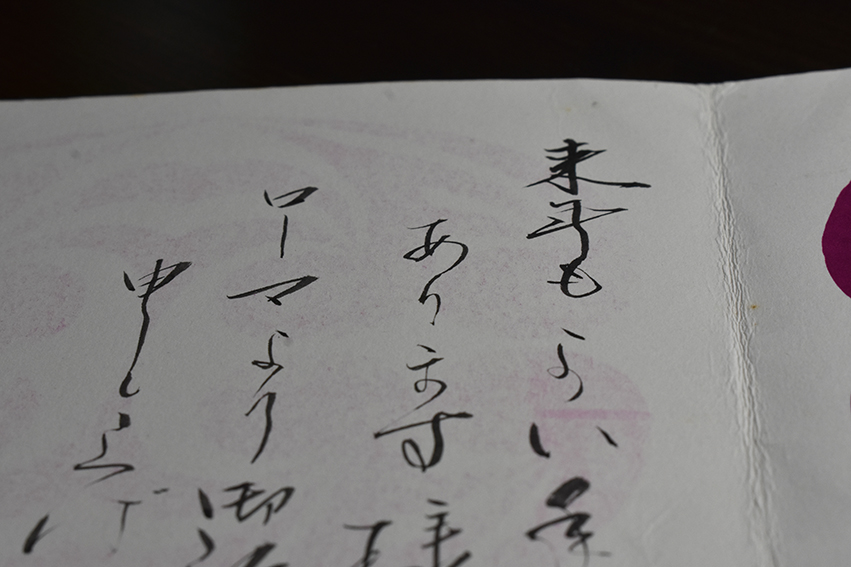 来年もよい年
あります様
ローマより御
申し上げ